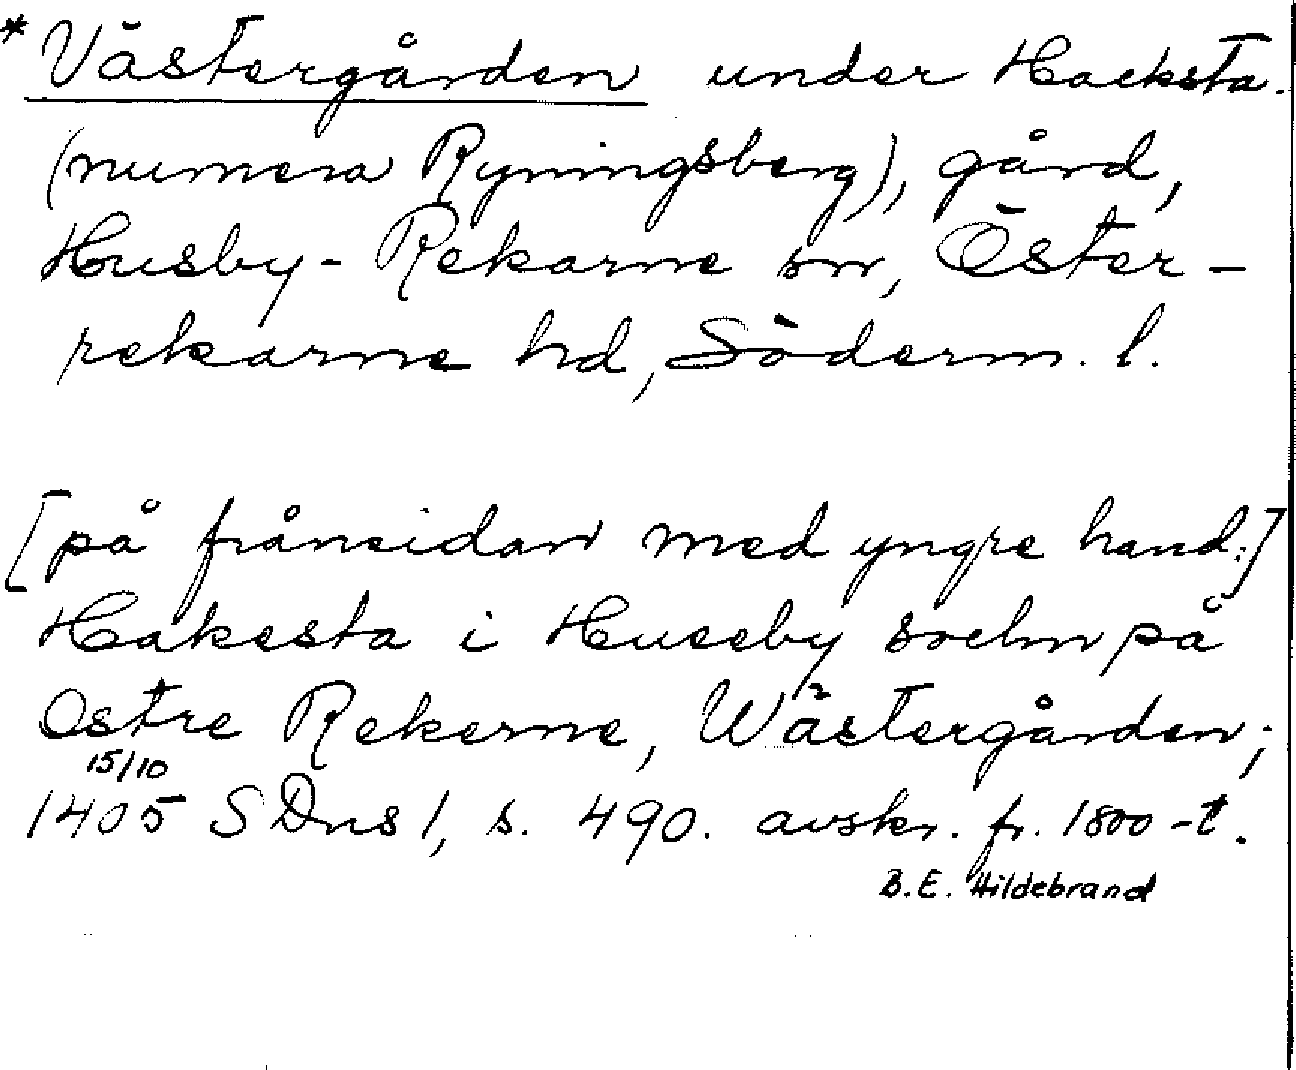 * Västergården under Hacksta
(numera Ryningsberg), gård,
Husby-Rekarne sn, Öster-
rekarne hd, Söderm. l.
[på frånsidan med yngre hand:]
Hakesta i Huseby sochn på
Ostre Rekerne, Wästergården;
15/10
1405 SDns 1, s. 490. avskr. fr. 1800-t.
B.E. Hildebrand